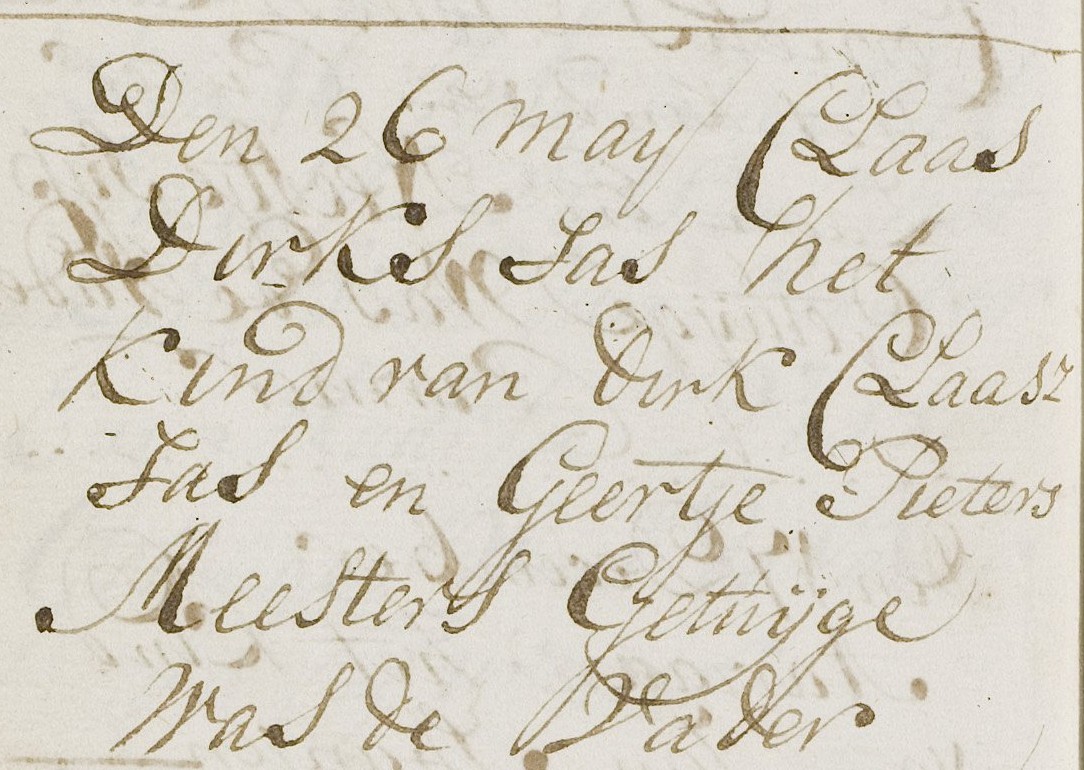 Den 26 may Claas
Dirks Jas het
Kind van dirk Claasz
Jas en Geertje Pieters
Meesters Getuijge
was de Vader